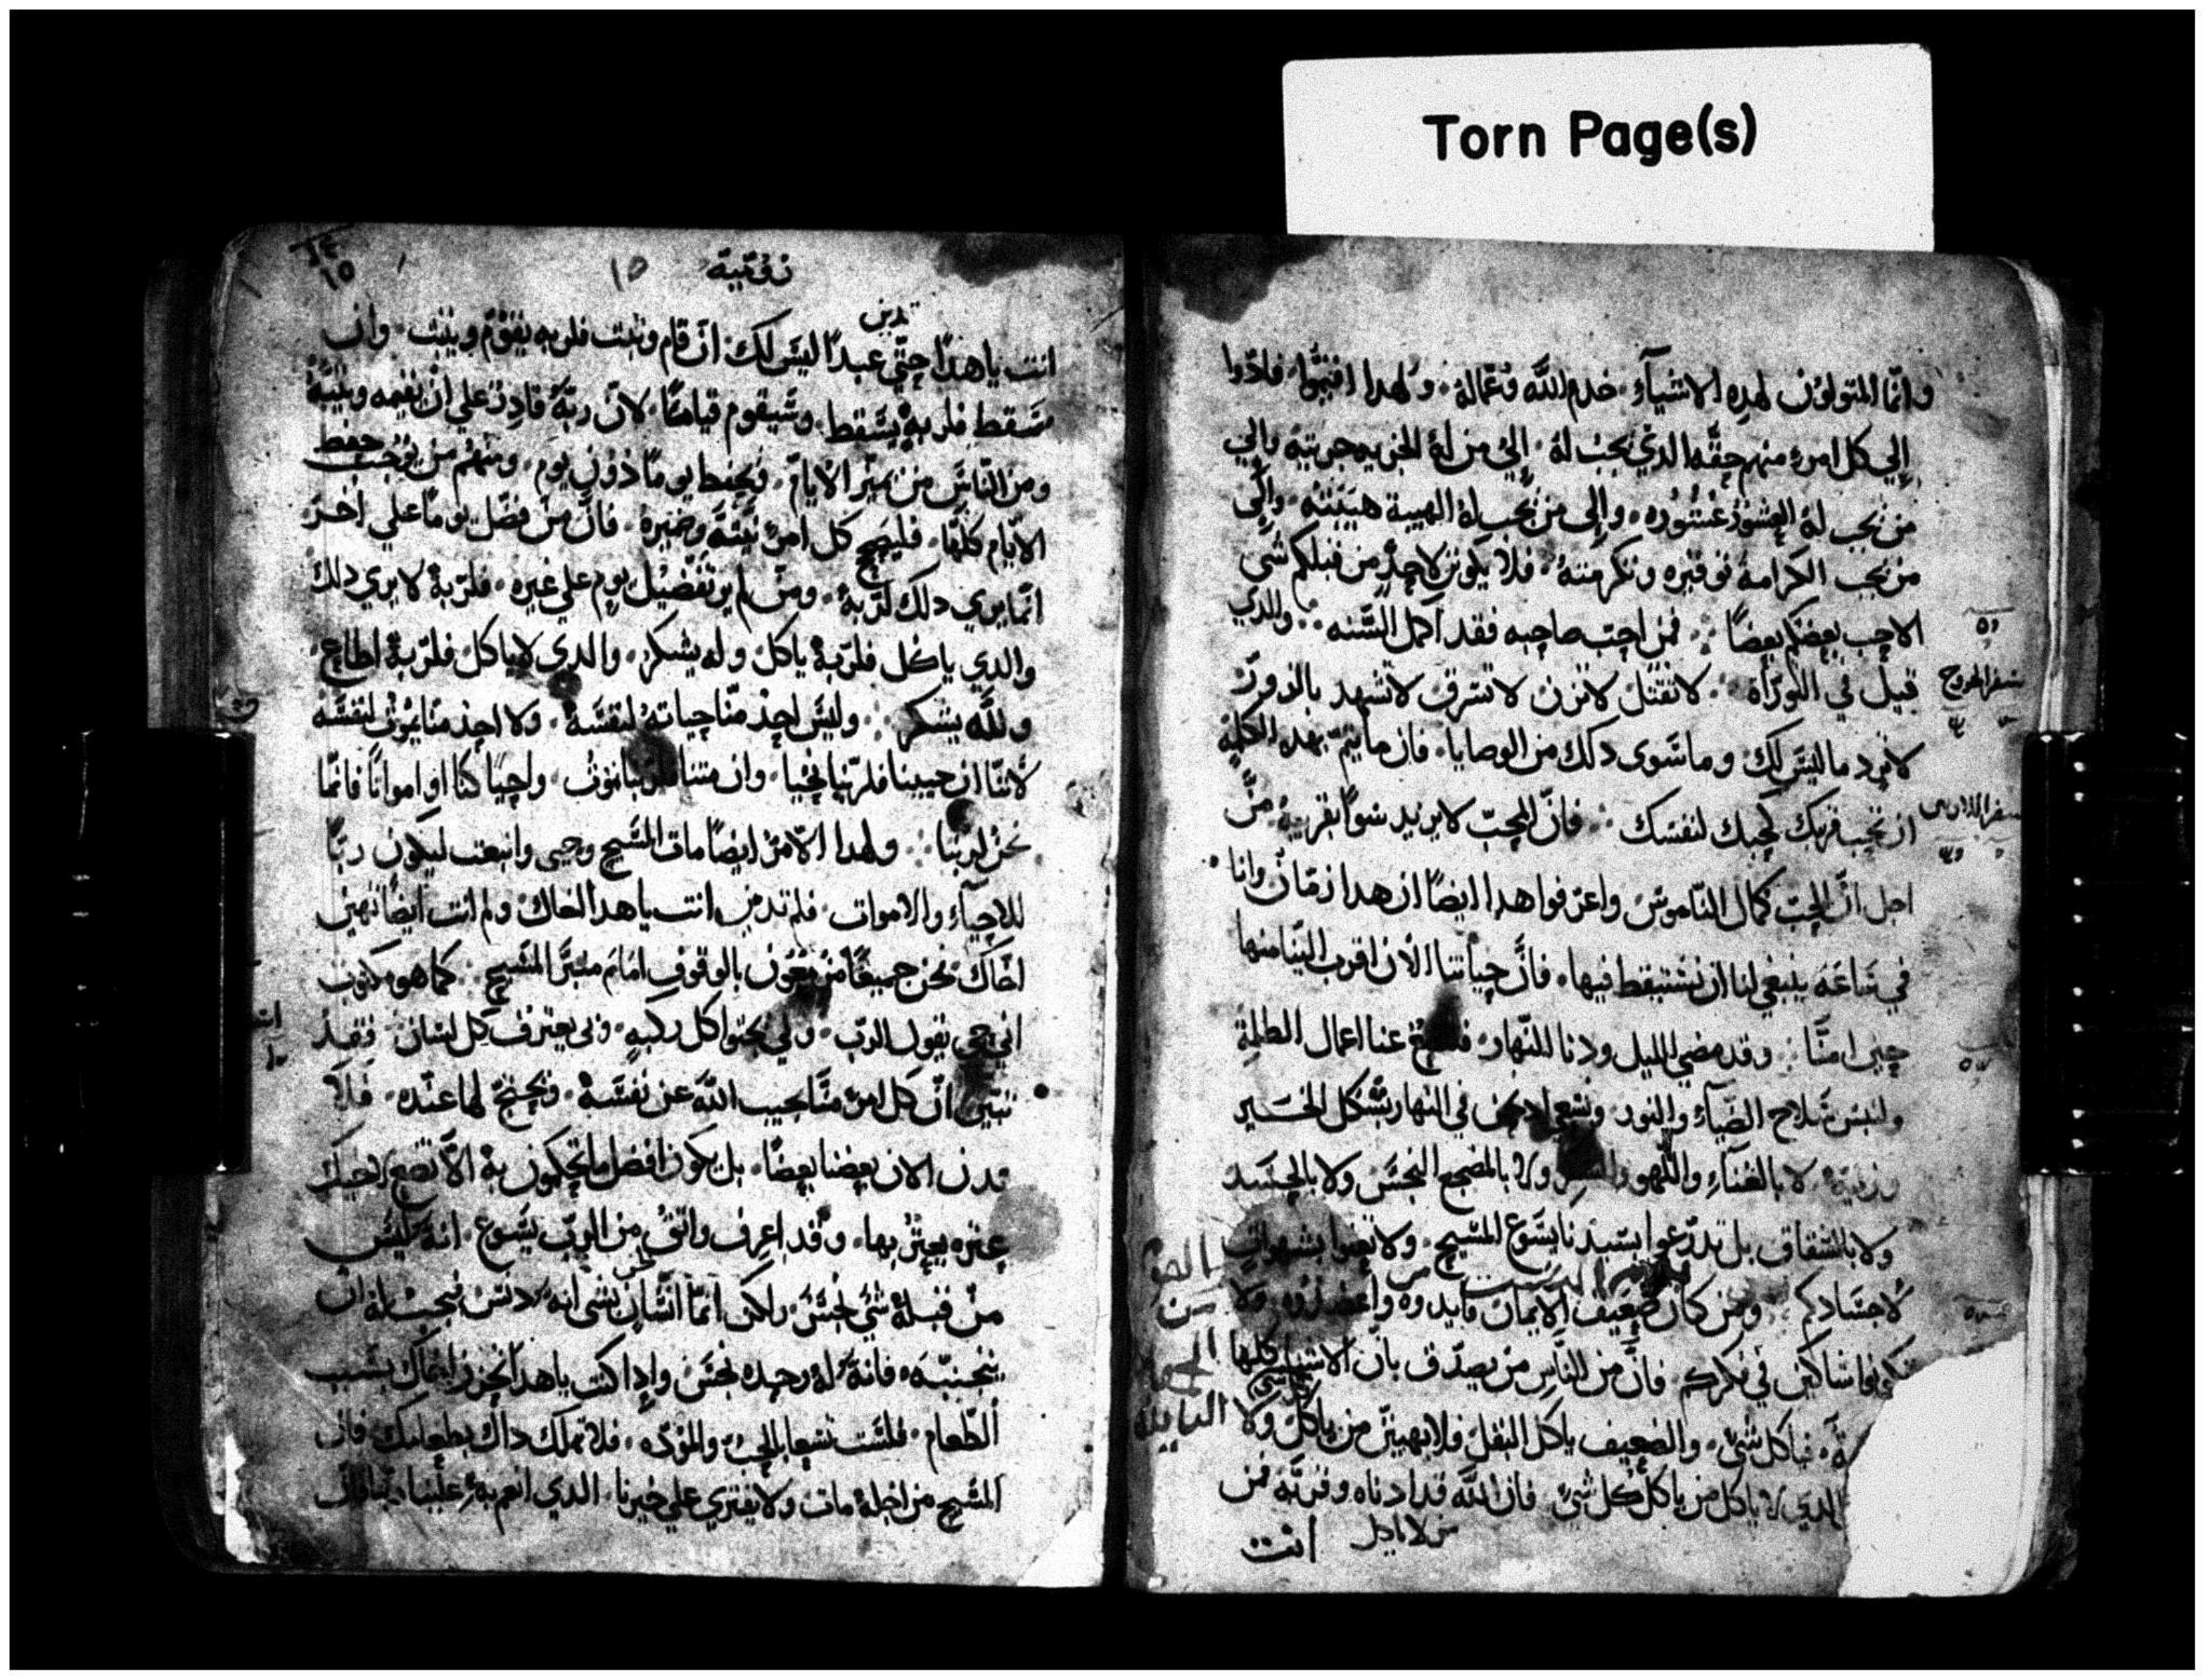 Torn Page(s)
وانما المتولون لهده الاشيآء خدم اللّه وعماله ولهدا اقيموا فادّوا
إلي كل امرء منهم حقّه الدي يجب له إلي من له الجزيه جزيته والي
من يجب له العشور عشوره والى من يجب له الهيبة هيبته والى
من يجب الكرامة توقيره وتكرمته فلا يكونن لاحدٍ من قبلكم شي
الا حب بعضكم بعضًا فمن احبّ صاحبه فقد اكمل السّنه والدي
قيل في التوراة لا تقتل لا تزن لا تسرق لا تشهد بالزور
لا تود ما ليس لك وما سوى دلك من الوصايا فان ما يتم بهده الكلمة
ان تحب قريبك كحبك لنفسك فانّ المحبّ لا يريد سوًا بقريبه من
اجل انّ الحبّ كمال النّاموس واعرفوا هدا ايضًا ان هدا زمان وانا
في ساعة ينبغي لنا ان نستيقط فيها فانّ حياتنا الان اقرب الينا منها
حين امنّا وقد مضي الليل ودنا النّهار عنا اعمال الطلمة
ولنبس سلاح الضيآء والنور ونسعي في النهار بشكل الخير
لا بالغنآء واللهو ولا بالمضجع النجس ولا بالحسد
ولا بالشقاق بل تدرّعوا بسيدنا يسوع المسيح ولا بشهوات
لاجسادكم ومن كان ضعيف الايمان فايدوه ولا
تكونوا شاكين في فكركم فانّ من النّاس من يصدّق بان الاشيا كلها
فياكل شيء والضعيف ياكل البقل فلا يهينن من ياكل ولا
الدي لا ياكل من ياكل كل شيء فان اللّه قد ادناه وقربه فمن
من لا ياكل
انت
سفر الخروج
١٥
انت يا هدا حتّي تدين عبدًا ليس لك ان قام وثبت فلربه يقوم ويثبت وان
سقط فلربه يسقط وسيقوم قيامًا لانّ ربّه قادر علي ان يقيمه ويثبته
ومن النّاس من يميّز الايام فيحفط يومًا دون يوم ومنهم من يوجب حفط
الايام كلها فليصح كل امرء نيته وضميره فان من فضل يومًا علي اخر
انما يري دلك لربه ومن لم ير تفضيل يوم علي غيره فلربه لا يري دلك
والدي ياكل فلربه ياكل وله يشكر والدي لا ياكل فلربه اطاع
وللّه يشكر وليس احد منّا حياته لنفسه ولا احد منا يموت لنفسه
لاننا ان حيينا فلربنا نحيا وان متنا نموت واحيا كنا او امواتًا فانما
نحن لربنا ولهدا الامر ايضًا مات المسيح وحيي وانبعث ليكون ربًا
للاحيآء والاموات فلم تدين انت يا هدا اخاك ولم انت ايضًا تهين
اخاك نحن جميعًا مزمعون بالوقوف امام منبر المسيح كما هو مكتوب
اني حي يقول الرب ولي يجثوا كل ركبه ولي يعترف كل لسان فقد
تبين انّ كل امرء منّا يجيب اللّه عن نفسه ويحتج لما عنده فلا
ندن الان بعضنا بعضًا بل يكون افضل ما تحكمون به الّا تضع لاخيك
عثره يعثر بها وقد اعرف واثق من الربّ يسوع انه ليس
من قبله شي نجس ولكن انما انسان يشي انه دنس فيجب له ان
يتجنبه فانه له وحده نجس وادا كنت يا هدا تحزن اخاك بسبب
الطّعام فلست تسعا بالحب والمودّه فلا تهلك داك بطعامك فان
المسيح من اجله مات ولا يفتري علي خيرنا الدي انعم به علينا ربنا فان